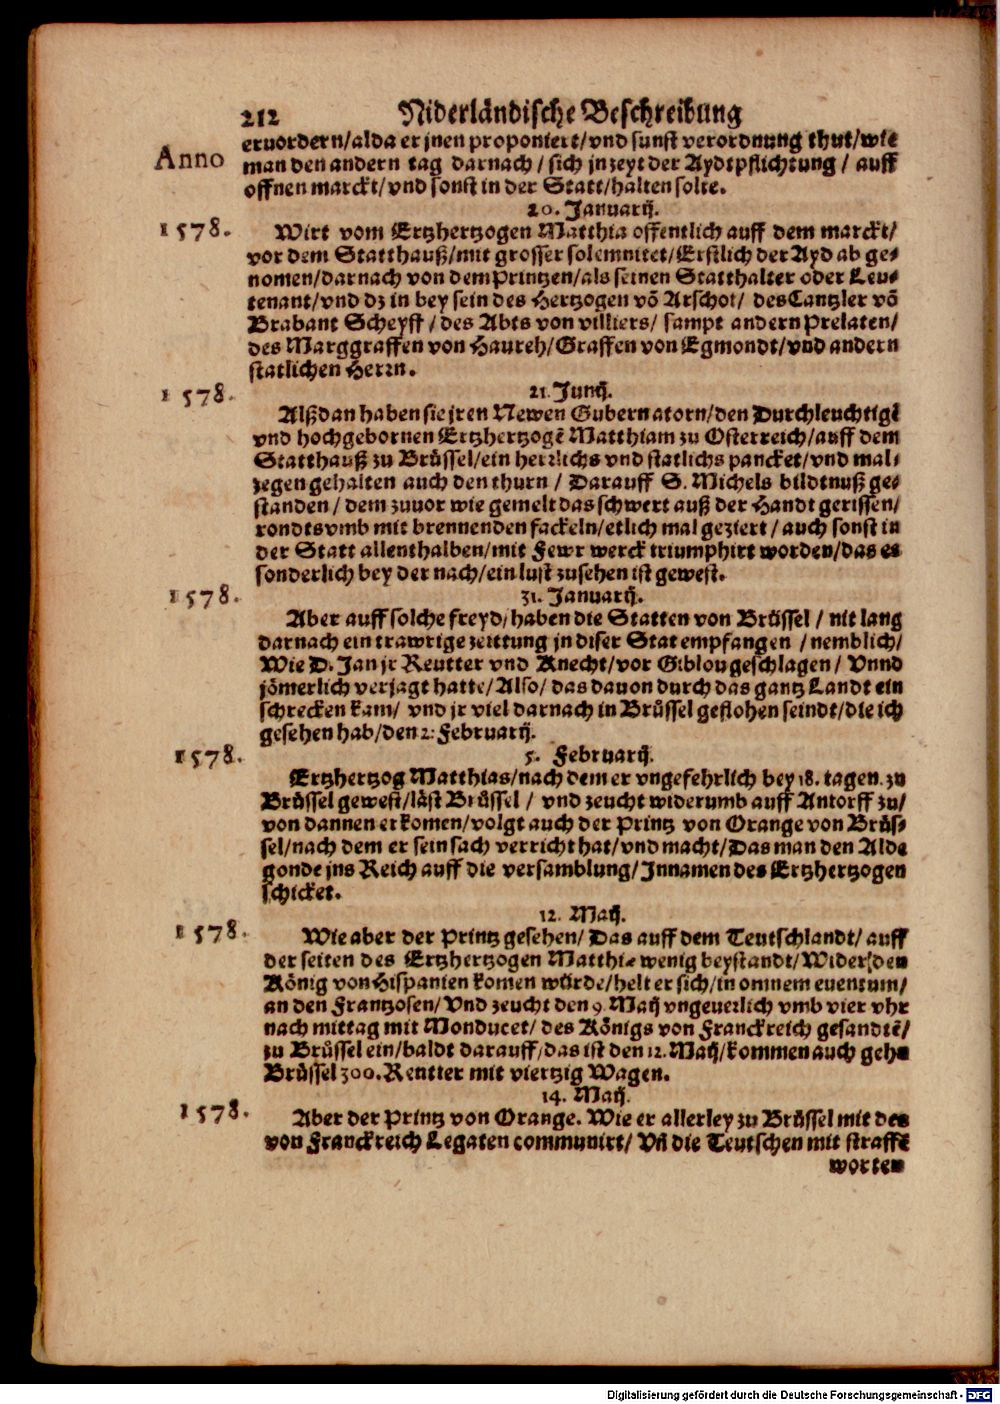 212 Niderländische Beschreibung
eruordern/alda er jnen proponiert/vnd sunst verordnung thut/wie
Anno man den andern tag darnach / sich in zeyt der Aydtpflichtung / auff
offnen marckt/vnd sonst in der Statt/halten solte.
20. Januarij.
1578. Wirt vom Ertzhertzogen Matthia offentlich auff dem marckt/
vor dem Statthauß/mit grosser solemnitet/Erstlich der Ayd ab ge-
nomen/darnach von dem Printzen/als seinen Statthalter oder Leu-
tenant/vnd dz in bey sein des Hertzogen võ Arschot/ des Cantzler võ
Brabant Scheyff / des Abts von villiers/ sampt andern Prelaten/
des Marggraffen von Haureh/Graffen von Egmondt/vnd andern
statlichen Herrn.
1578. 21. Junij.
Alßdan haben sie jren Newen Gubernatorn/den Durchleuchtigẽ
vnd hochgebornen Ertzhertzogẽ Matthiam zu Osterreich/auff dem
Statthauß zu Brüssel/ein herrlichs vnd statlichs pancket/vnd mal-
zegen gehalten auch den thurn / Darauff S. Michels bildtnuß ge-
standen / dem zuuor wie gemelt das schwert auß der Handt gerissen/
rondtsvmb mit brennenden fackeln/etlich mal geziert / auch sonst in
der Statt allenthalben/mit Fewr werck triumphirt worden/das es
sonderlich bey der nach/ein lust zusehen ist gewest.
1578. 31. Januarij.
Aber auff solche freyd/haben die Statten von Brüssel / nit lang
darnach ein trawrige zeittung in diser Stat empfangen / nemblich/
Wie D. Jan jr Reutter vnd Knecht/vor Giblou geschlagen / Vnnd
jömerlich verjagt hatte/Also/das dauon durch das gantz Landt ein
schrecken kam/ vnd jr viel darnach in Brüssel geflohen seindt/die ich
gesehen hab/den 2. Februarij.
1578. 5. Februarij.
Ertzhertzog Matthias/nach dem er vngefehrlich bey 18. tagen zu
Brüssel gewest/läst Brüssel / vnd zeucht widerumb auff Antorff zu/
von dannen er komen/volgt auch der Printz von Orange von Brüs-
sel/nach dem er sein sach verricht hat/vnd macht/Das man den Alde
gonde jns Reich auff die versamblung/Jnnamen des Ertzhertzogen
schicket.
12. Maij.
1578. Wie aber der Printz gesehen/ Das auff dem Teutschlandt/ auff
der seiten des Ertzhertzogen Matthie wenig beystandt/Wider den
König von Hispanien komen würde/helt er sich/in omnem euentum/
an den Frantzosen/Vnd zeucht den 9. Maij vngeuerlich vmb vier vhr
nach mittag mit Monducet/ des Königs von Franckreich gesandtẽ/
zu Brüssel ein/baldt darauff/das ist den 12. Maij/kommen auch gehn
Brüssel 300. Rentter mit viertzig Wagen.
14. Maij.
1578. Aber der Printz von Orange. Wie er allerley zu Brüssel mit den
von Franckreich Legaten communirt/ Vñ die Teutschen mit straffẽ
worten
Digitalisierung gefördert durch die Deutsche Forschungsgemeinschaft - DFG